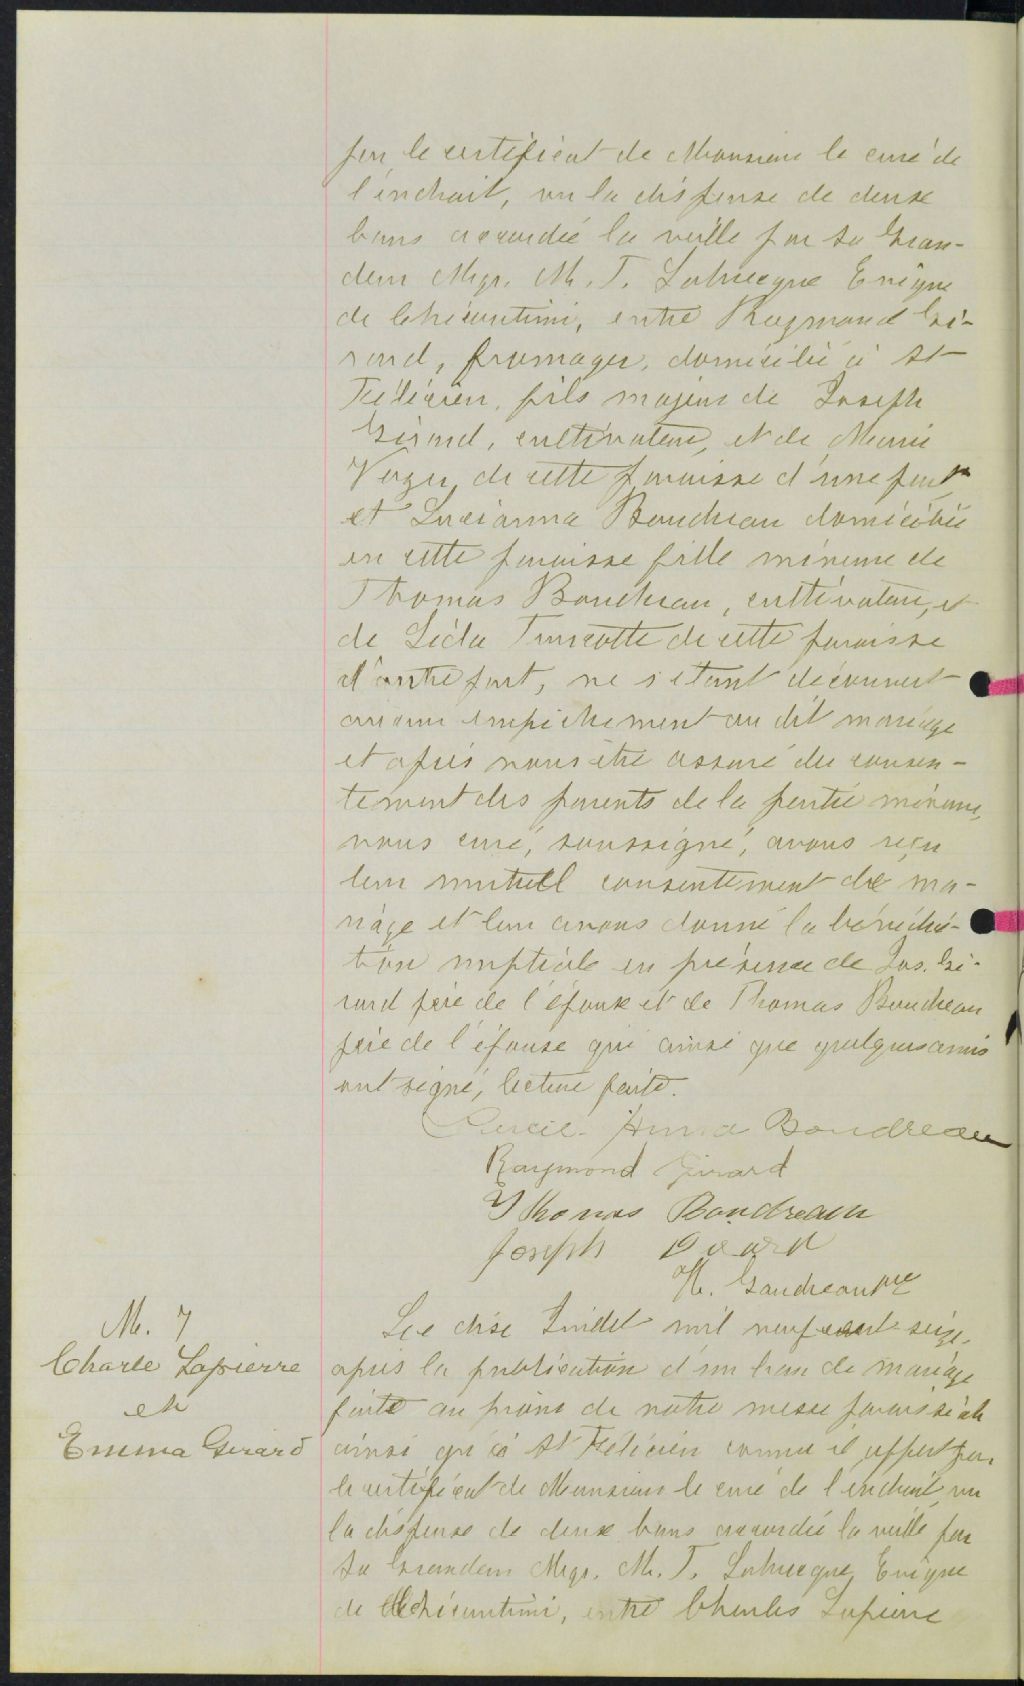 par le certificat de Monsieur le curé de
l'endroit, vu la dispense de deux
bans accordée la veille par Sa Gran-
deur Mgr. M. T. Labrecque Evêque
de Chicoutimi, entre Raymond Gi-
rard, fromager, domicilié à St
Félicien, fils majeur de Joseph
Girard, cultivateur, et de Marie
de cette paroisse d'une part
et Lucianna Boudreau domiciliée
en cette paroisse fille mineure de
Thomas Boudreau, cultivateur, et
de Léda Turcotte de cette paroisse
d'autre part, ne s'étant découvert
aucun empêchement au dit mariage
et après nous être assuré du consen-
tement des parents de la partie mineure,
nous curé, soussigné, avons reçu
leur mutuel consentement de ma-
riage et leur avons donné la bénédic-
tion nuptiale en présence de Jos. Gi-
rard père de l'époux et de Thomas Boudreau
père de l'épouse qui ainsi que quelques amis
ont signé, lecture faite.
Lucie-Anna Boudreau
Raymond Girard
Thomas Boudreau
Joseph Girard
H. Gaudreau ptre
M. 7
Charle Lapierre
et
Emma Girard
Le dix Juillet mil neuf cent seize,
après la publication d'un ban de mariage
faite au prône de notre messe paroissiale
ainsi qu'à St Félicien comme il appert par
le certificat de Monsieur le curé de l'endroit, vu
la dispense de deux bans accordée la veille par
Sa Grandeur Mgr. M. T. Labrecque, Evêque
de Chicoutimi, entre Charles Lapierre